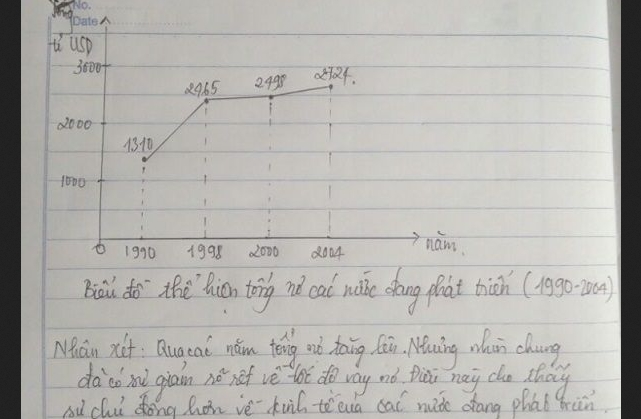 No.
Date
tỉ USD
3000
2724.
2465
2498
2000
1310
1000
0 1990 1998 2000 2004 năm.
Biểu đồ thể hiện tổng nợ các nước đang phát triển (1990-2004)
Nhận xét: Qua các năm tổng nợ tăng lên. Nhưng nhìn chung
đã có sự giảm rõ rệt về tốc độ vay nợ. Điều này cho thấy
sự chủ động hơn về kinh tế của các nước đang phát triển.